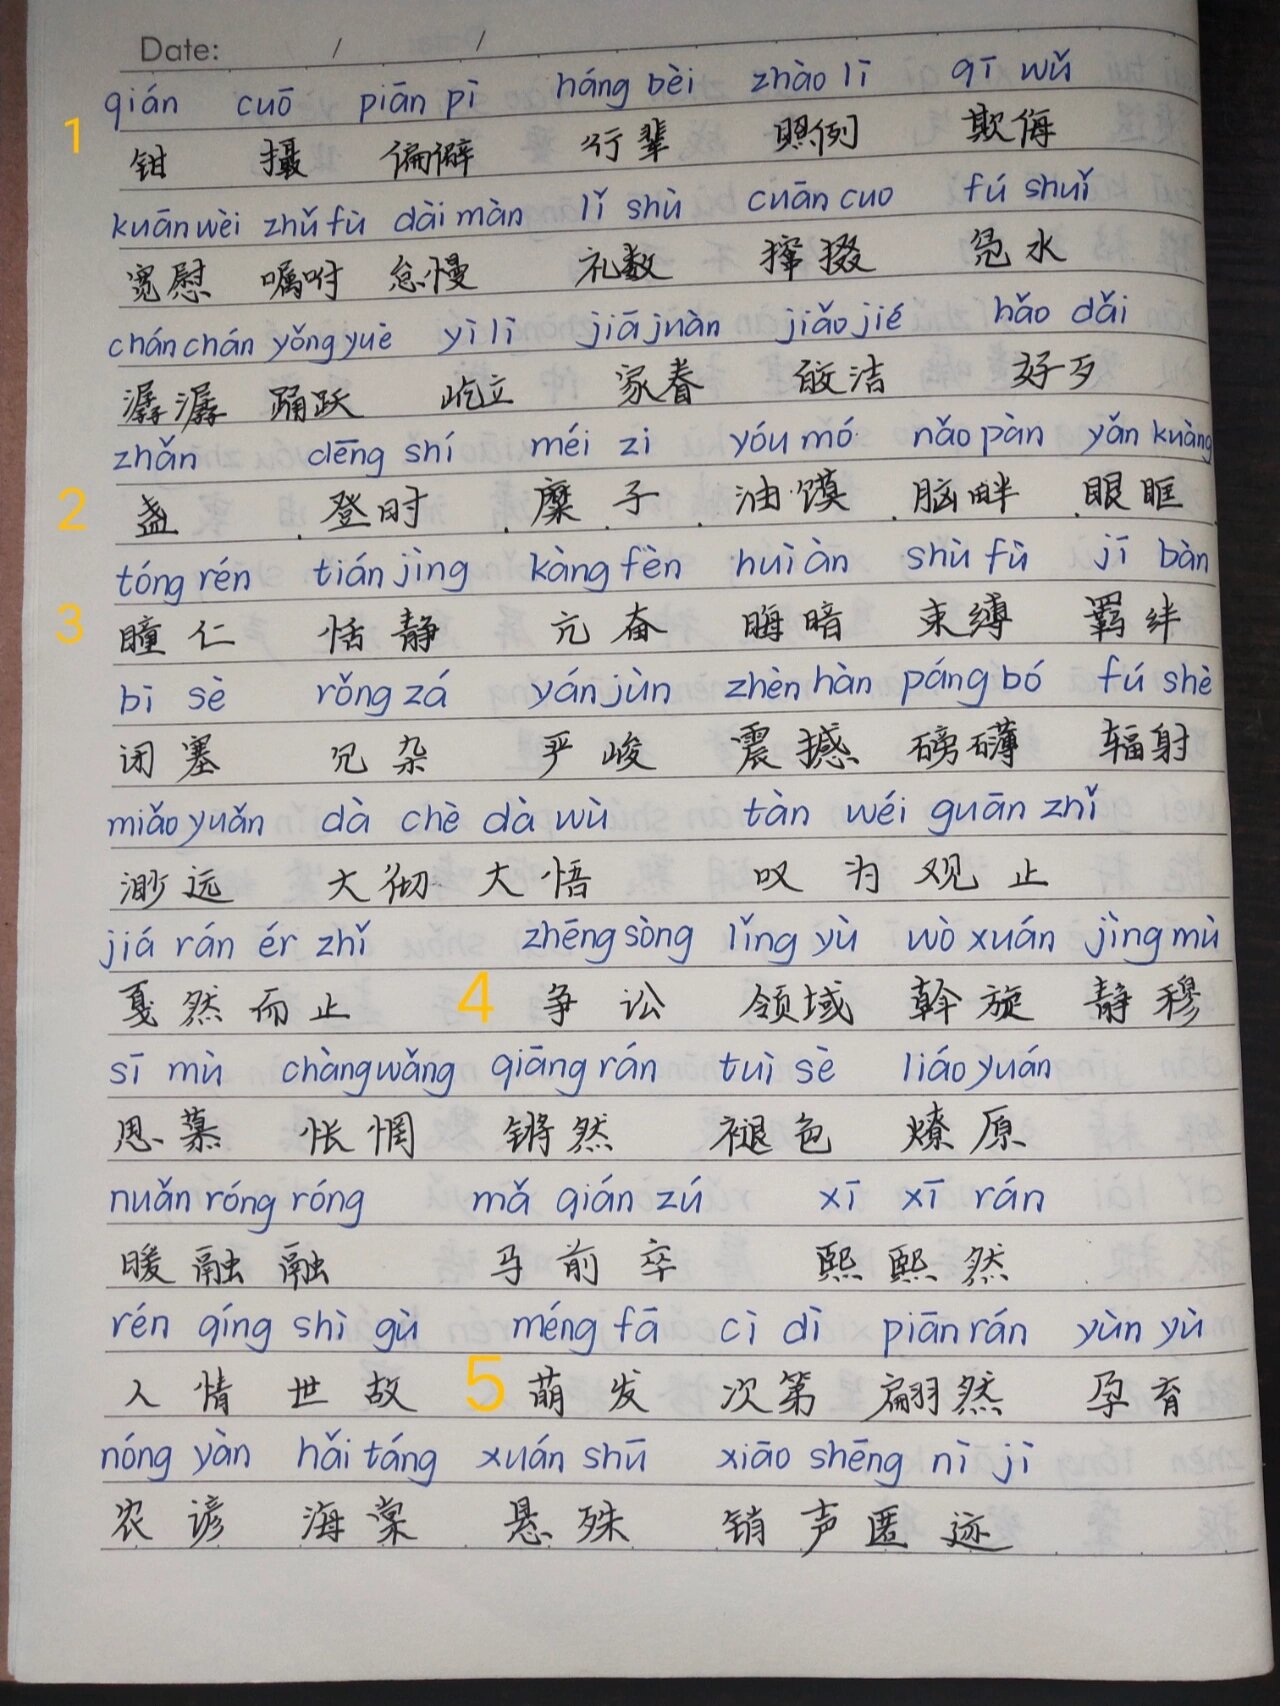 Date: / /
qián cuō piān pì háng bèi zhào lì qī wǔ
1 钳 撮 偏僻 行辈 照例 欺侮
kuān wèi zhǔ fù dài màn lǐ shù cuān cuo fú shuǐ
宽慰 嘱咐 怠慢 礼数 撺掇 凫水
chán chán yǒng yuè yì lì jiā juàn jiǎo jié hǎo dǎi
潺潺 踊跃 屹立 家眷 皎洁 好歹
zhǎn dēng shí méi zi yóu mó nǎo pàn yǎn kuàng
2 盏 登时 糜子 油馍 脑畔 眼眶
tóng rén tián jìng kàng fèn huì àn shù fù jī bàn
3 瞳仁 恬静 亢奋 晦暗 束缚 羁绊
bì sè rǒng zá yán jùn zhèn hàn páng bó fú shè
闭塞 冗杂 严峻 震撼 磅礴 辐射
miǎo yuǎn dà chè dà wù tàn wéi guān zhǐ
渺远 大彻大悟 叹为观止
jiá rán ér zhǐ zhēng sòng lǐng yù wò xuán jìng mù
戛然而止 4 争讼 领域 斡旋 静穆
sī mù chàng wǎng qiāng rán tuì sè liáo yuán
思慕 怅惘 锵然 褪色 燎原
nuǎn róng róng mǎ qián zú xī xī rán
暖融融 马前卒 熙熙然
rén qíng shì gù méng fā cì dì piān rán yùn yù
人情世故 5 萌发 次第 翩然 孕育
nóng yàn hǎi táng xuán shū xiāo shēng nì jì
农谚 海棠 悬殊 销声匿迹